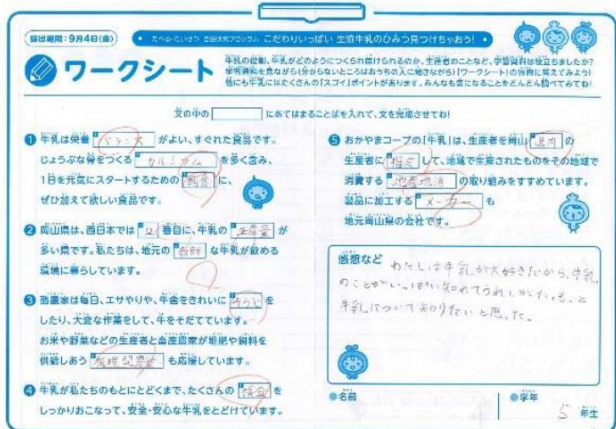 提出期間：9月4日(金)
たべる・たいせつ 自由研究プログラム こだわりいっぱい 生産牛乳のひみつ見つけちゃおう！
ワークシート
学習資料を見ながら(分からないところはおうちの人に聞きながら)「ワークシート」の質問に答えてみよう！
他にも牛乳にはたくさんの「スゴイ」ポイントがあります。みんなも気になることをどんどん調べてみてね！
文の中の にあてはまることばを入れて、文を完成させてね！
1 牛乳は栄養 バランス がよい、すぐれた食品です。
じょうぶな骨をつくる カルシウム を多く含み、
1日を元気にスタートするための に、
ぜひ加えて欲しい食品です。
2 岡山県は、西日本では 2 番目に、牛乳の 生産量 が
多い県です。私たちは、地元の 新鮮 な牛乳が飲める
環境に暮らしています。
3 酪農家は毎日、エサやりや、牛舎をきれいに そうじ を
したり、大変な作業をして、牛をそだてています。
お米や野菜などの生産者と畜産農家が堆肥や飼料を
供給しあう も応援しています。
4 牛乳が私たちのもとにとどくまで、たくさんの 検査 を
しっかりおこなって、安全・安心な牛乳をとどけています。
5 おかやまコープの「牛乳」は、生産者を岡山 県内 の
生産者に 指定 して、地域で生産されたものをその地域で
消費する 地産地消 の取り組みをすすめています。
製品に加工する メーカー も
地元岡山県の会社です。
感想など
わたしは牛乳が大好きだから、牛乳
のことがいっぱい知れてうれしかった。もっと
牛乳について知りたいと思った。
●名前
●学年
5 年生